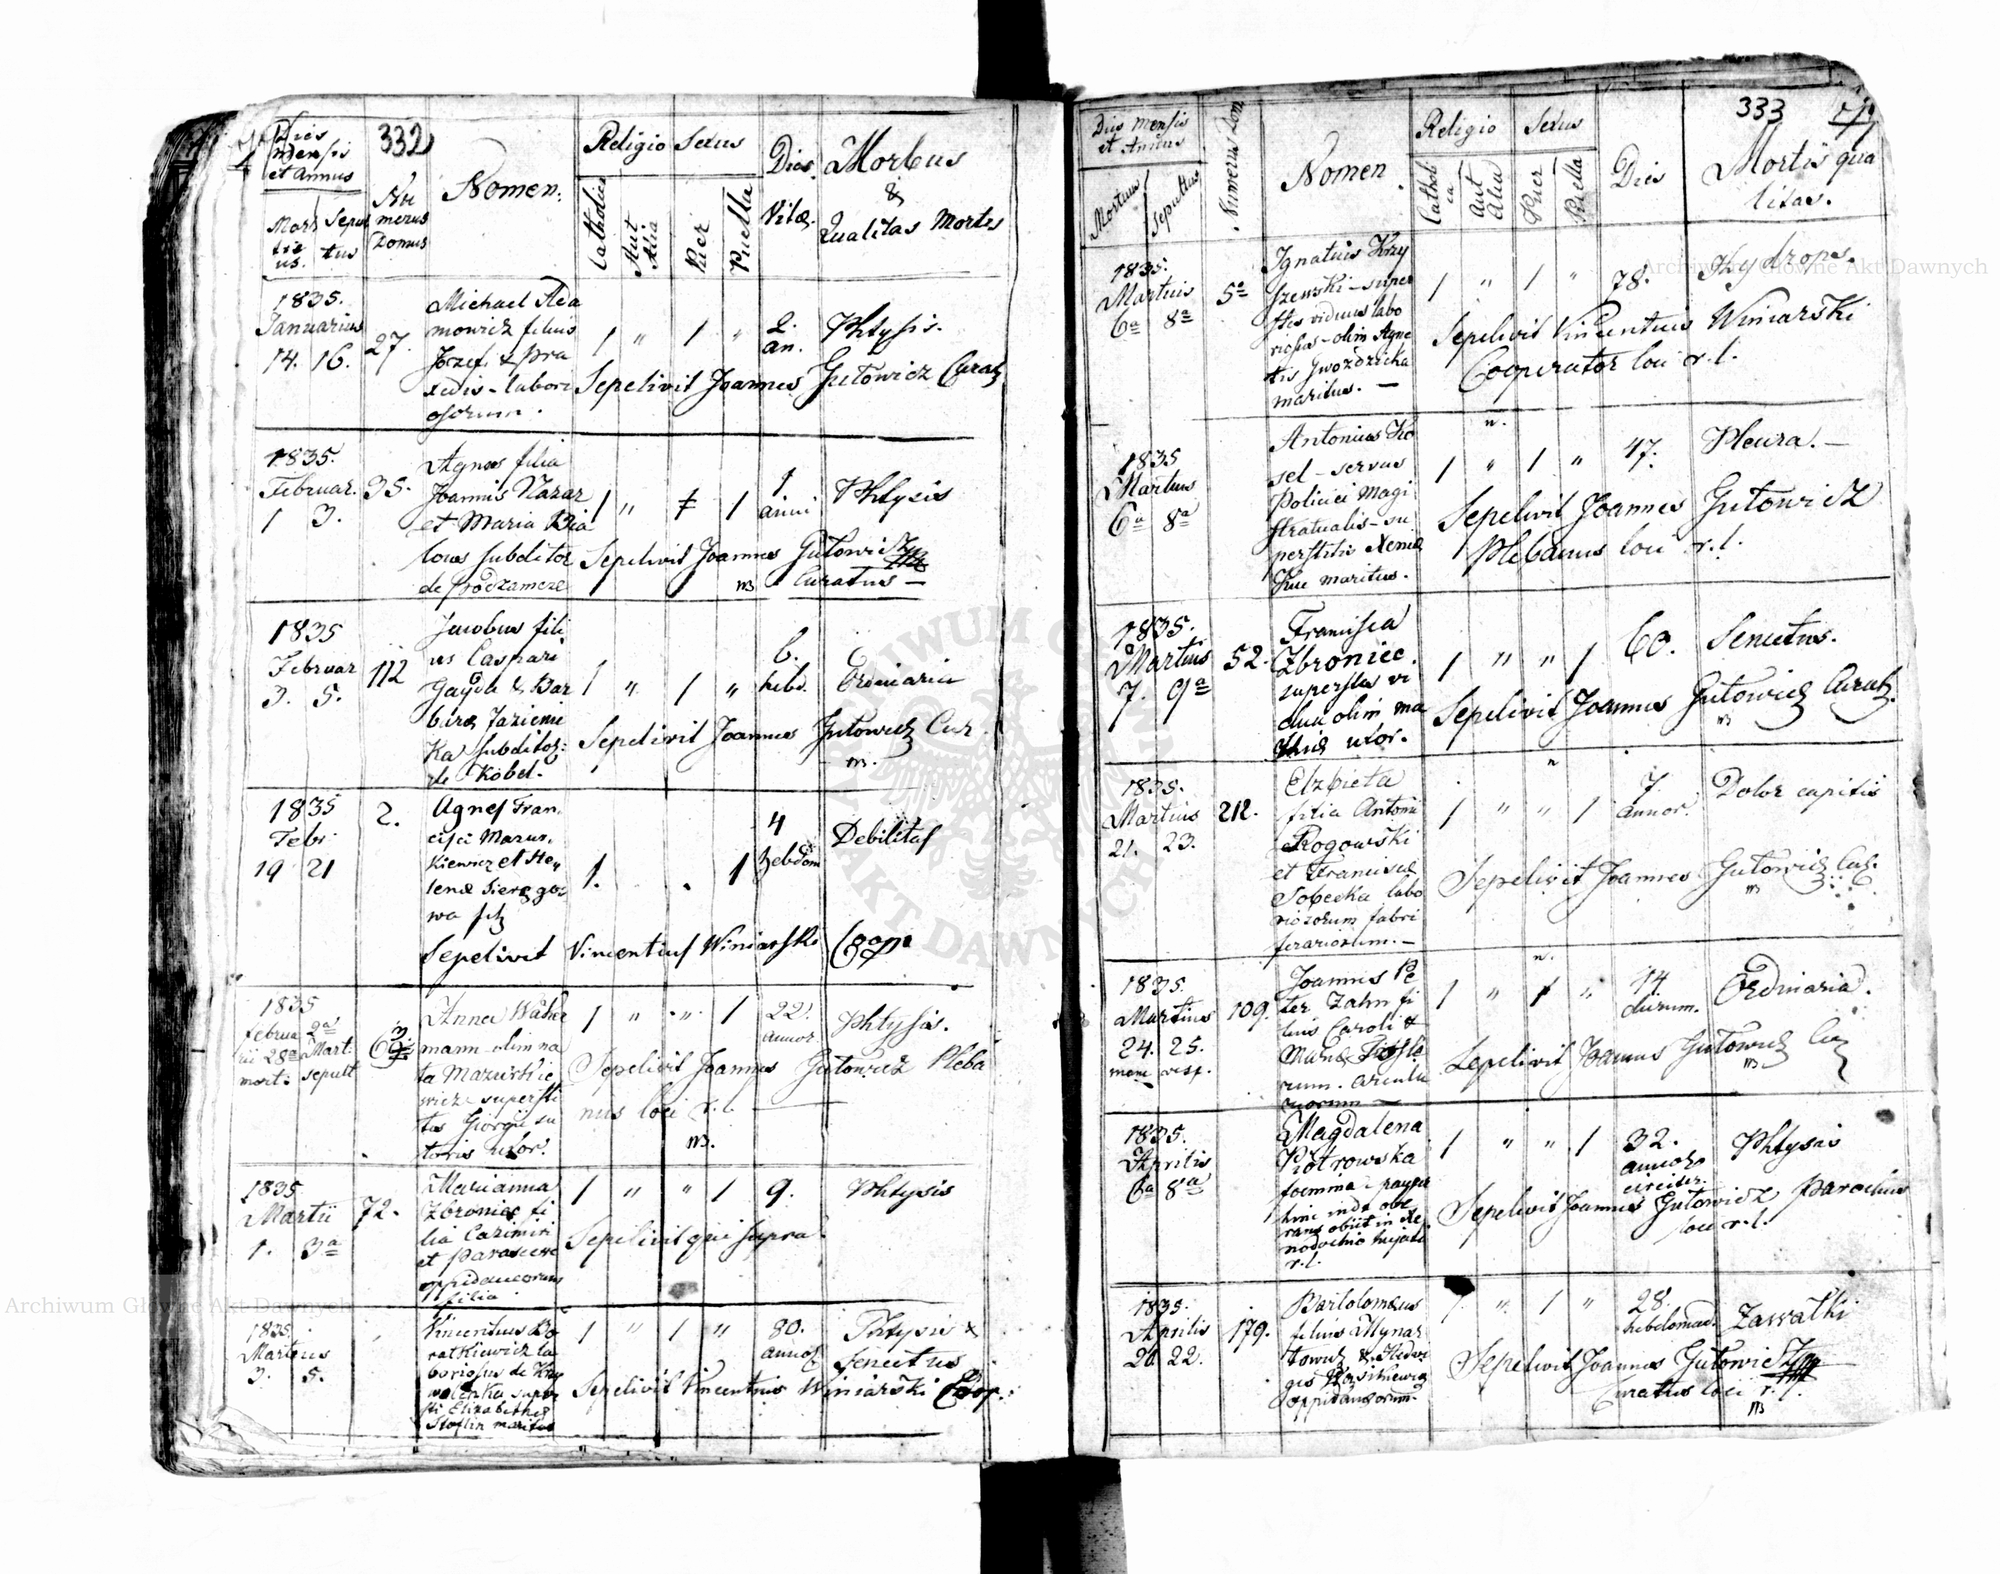 Dies
mensis
et Annus
332
Numerus
Domus
Nomen.
Religio Sexus
Dies
Vitæ.
Morbus
&
Qualitas Mortis
Mortuus. Sepultus
Catholica
Aut Alia
Puer
Puella
1835.
Januarius
14. 16.
27.
Michael Ada
mowicz filius
Jozef. & Pra
xedis - labori
osorum.
1 " 1 "
2.
an.
Phtysis.
Sepelivit Joannes Gutowicz Curat
1835.
Februar.
1 3.
35.
Agnes filia
Joannis Nazar
et Maria Bia
subditor
de
1 " 1
1
anni
Phtysis
Sepelivit Joannes Gutowicz
Curatus —
1835
Februar
3. 5.
112
Jacobus fili
us Caspari
Gayda & Bar
baræ Jazieni
ka subditor:
de Kobel.
1 " 1 "
6.
hebd.
Ordinaria
Sepelivit Joannes Gutowicz Cur.
1835
Febr.
19 21
2.
Agnes Fran
cisci Mazur
kiewicz et He
lenæ
wa
1. . 1
4
hebdom
Debilitas
Sepelivit Vincentius Winiarski Coop
1835
februa
28a
mort. sepult
63
Anna
mann olim na
ta Mazurkie
wicz supersti
tis Giorgii su
toris uxor.
1 " " 1
22.
annor
Phtysis.
Sepelivit Joannes Gutowicz Pleba
nus loci r. l.
1835
Martii
1. 3a
72.
Marianna
Zbroniec fi
lia Cazimiri
et Parascevæ
oppidaneorum
filia
1 " " 1
9.
Phtysis
Sepelivit qui supra
1835.
Martius
3. 5.
Vincentius Bo
ratkiewicz la
boriosus de Kry
wolenka super
sti Elizabethæ
Stoflin maritus
1 " 1 "
80.
annor
Phtysis &
senectus
Sepelivit Vincentius Winiarski Coop.
Dies mensis
et Annus
Mortuus
Sepultus
Numerus Dom
Nomen.
Religio Sexus
Catholi
ca
Aut
Alia
Puer
Puella
Dies
333
Mortis qua
litas.
1835.
Martius
6a 8a
5a
Ignatius Krzy
szewski - super
stes viduus labo
riosus - olim Agne
tis Gwozdzicka
maritus. —
1 " 1 "
78.
Hydrops.
Sepelivit Vincentius Winiarski
Cooperator loci r. l.
1835
Martius
6a 8a
Antonius Ko
sel - servus
Policiei Magi
stratualis - su
perstitis
maritus.
1 " 1 "
47.
Pleura. —
Sepelivit Joannes Gutowicz
Plebanus loci r. l.
1835.
Martius
7. 9a
52.
Francisca
Zbroniec.
superstes vi
dua olim Ma
thiæ uxor.
1 " " 1
60.
Senectus.
Sepelivit Joannes Gutowicz Curat.
1835.
Martius
21. 23.
212.
Elzbieta
filia Antonii
Rogowski
et Franciscæ
Sobecka labo
riozorum fabri
ferariorum. —
1 " " 1
7
annor.
Dolor capitis
Sepelivit Joannes Gutowicz Cur.
1835.
Martius
24. 25.
mane vesp.
109.
Joannes Pe
ter Zahn fi
lius Caroli &
1 " 1 "
14
dierum.
Ordinaria.
Sepelivit Joannes Gutowicz Cur
1835.
Aprilis
6a 8a
Magdalena
Piotrowska
foemina - paupe
hinc inde obe
rans obiit in Xe
nodochio hujate
r. l.
1 " " 1
32.
annor
circiter.
Phtysis
Sepelivit Joannes Gutowicz Parochus
loci r. l.
1835.
Aprilis
20 22.
179.
Bartolomeus
filius Mynar
towicz & Hedwi
gis
oppidaneorum
1. " 1 "
28.
hebdomad.
Zawalki
Sepelivit Joannes Gutowicz
Curatus loci r. l.
Archiwum Główne Akt Dawnych
Archiwum Główne Akt Dawnych
ARCHIWUM GŁÓWNE AKT DAWNYCH